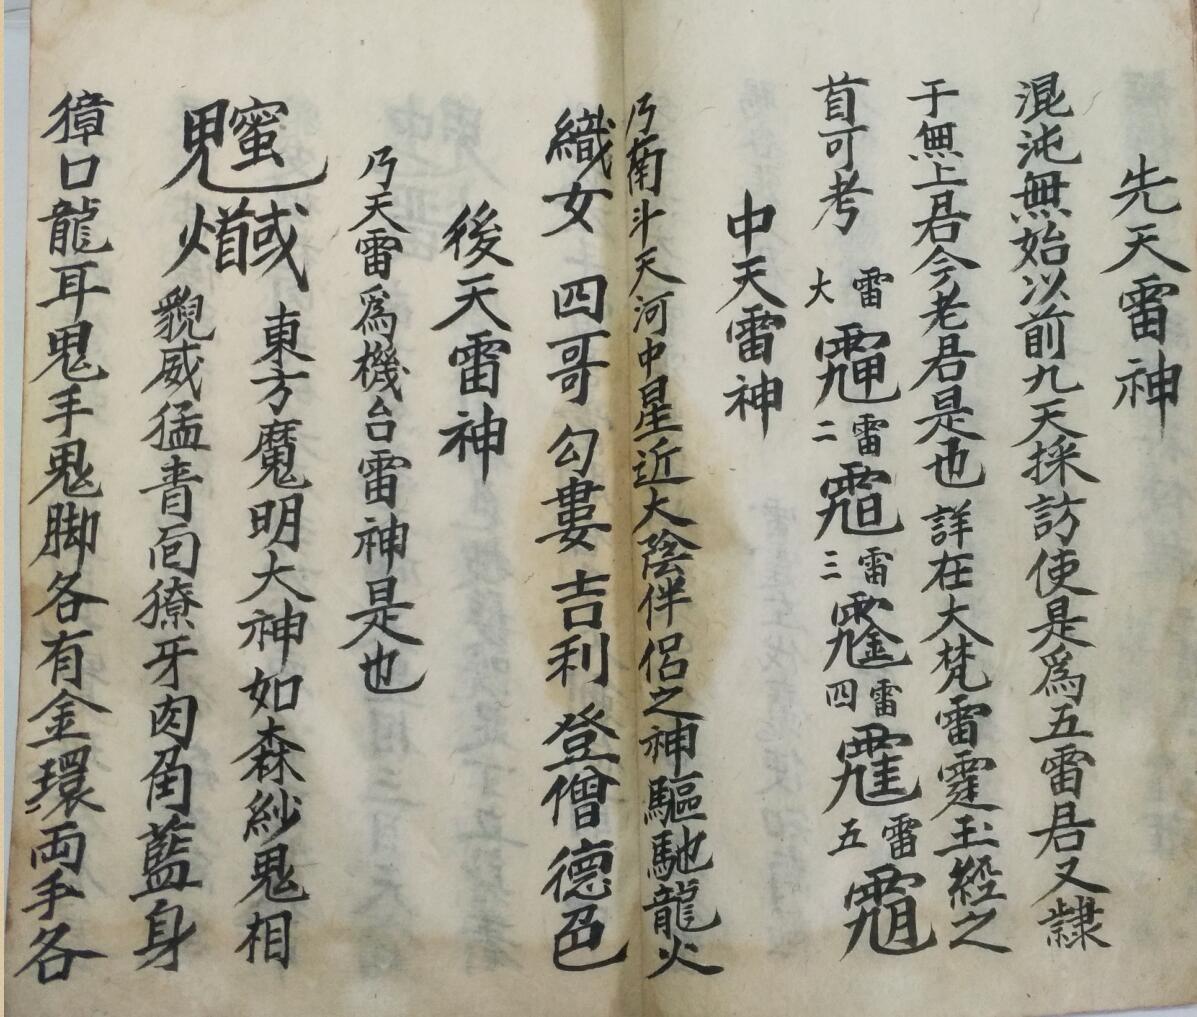 先天雷神
混沌無始以前九天採訪使是為五雷君又隸
于無上君今老君是也詳在大梵雷霆玉經之
首可考
大雷
二雷
三雷
四雷
五雷
中天雷神
乃南斗天河中星近大陰伴侶之神驅馳龍火
織女 四哥 勾婁 吉利 登僧 德色
後天雷神
乃天雷為機台雷神是也
東方魔明大神如森紗鬼相
貌威猛青面獠牙肉角藍身
獐口龍耳鬼手鬼脚各有金環両手各